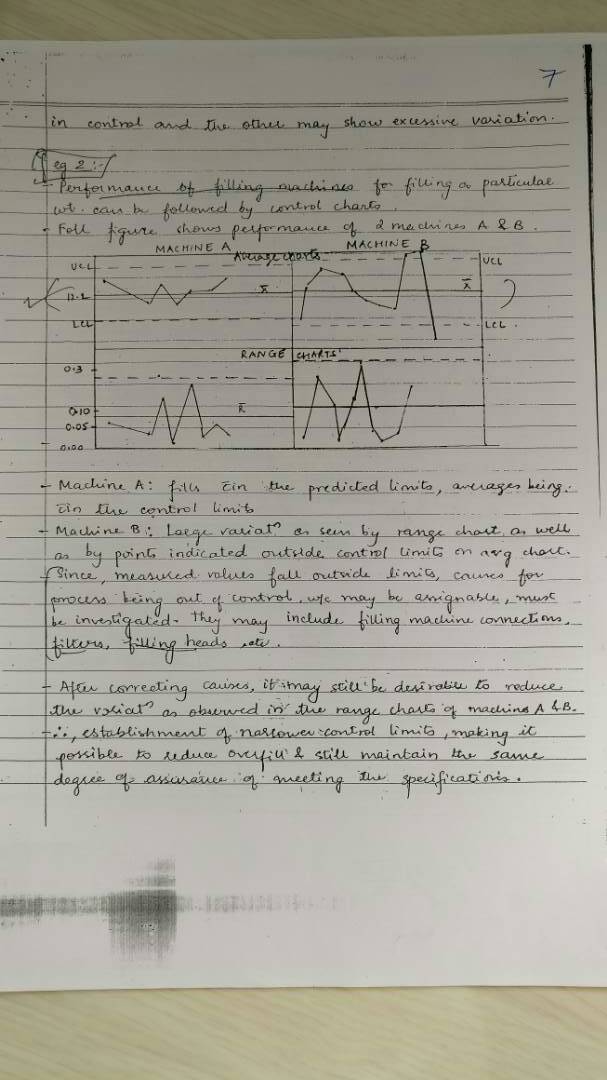 7
in control and the other may show excessive variation.
eg 2:-
- Performance of filling machines for filling a particular
wt. can be followed by control charts.
- Foll figure shows performance of 2 machines A & B.
MACHINE A Average charts MACHINE B
UCL UCL
12.2 x̄ x̄
LCL LCL.
RANGE CHARTS
0.3
0.10 R̄
0.05
0.00
- Machine A: fills c̄in the predicted limits, averages being
c̄in the control limits
- Machine B: Large variatⁿ as seen by range chart as well
as by points indicated outside control limits on avg chart.
Since, measured values fall outside limits, causes for
process being out of control, w/c may be assignable, must
be investigated. They may include filling machine connections,
filters, filling heads, etc.
- After correcting causes, it may still be desirable to reduce
the variatⁿ as observed in the range charts of machines A & B.
- ∴, establishment of narrower control limits, making it
possible to reduce overfill & still maintain the same
degree of assurance of meeting the specifications.